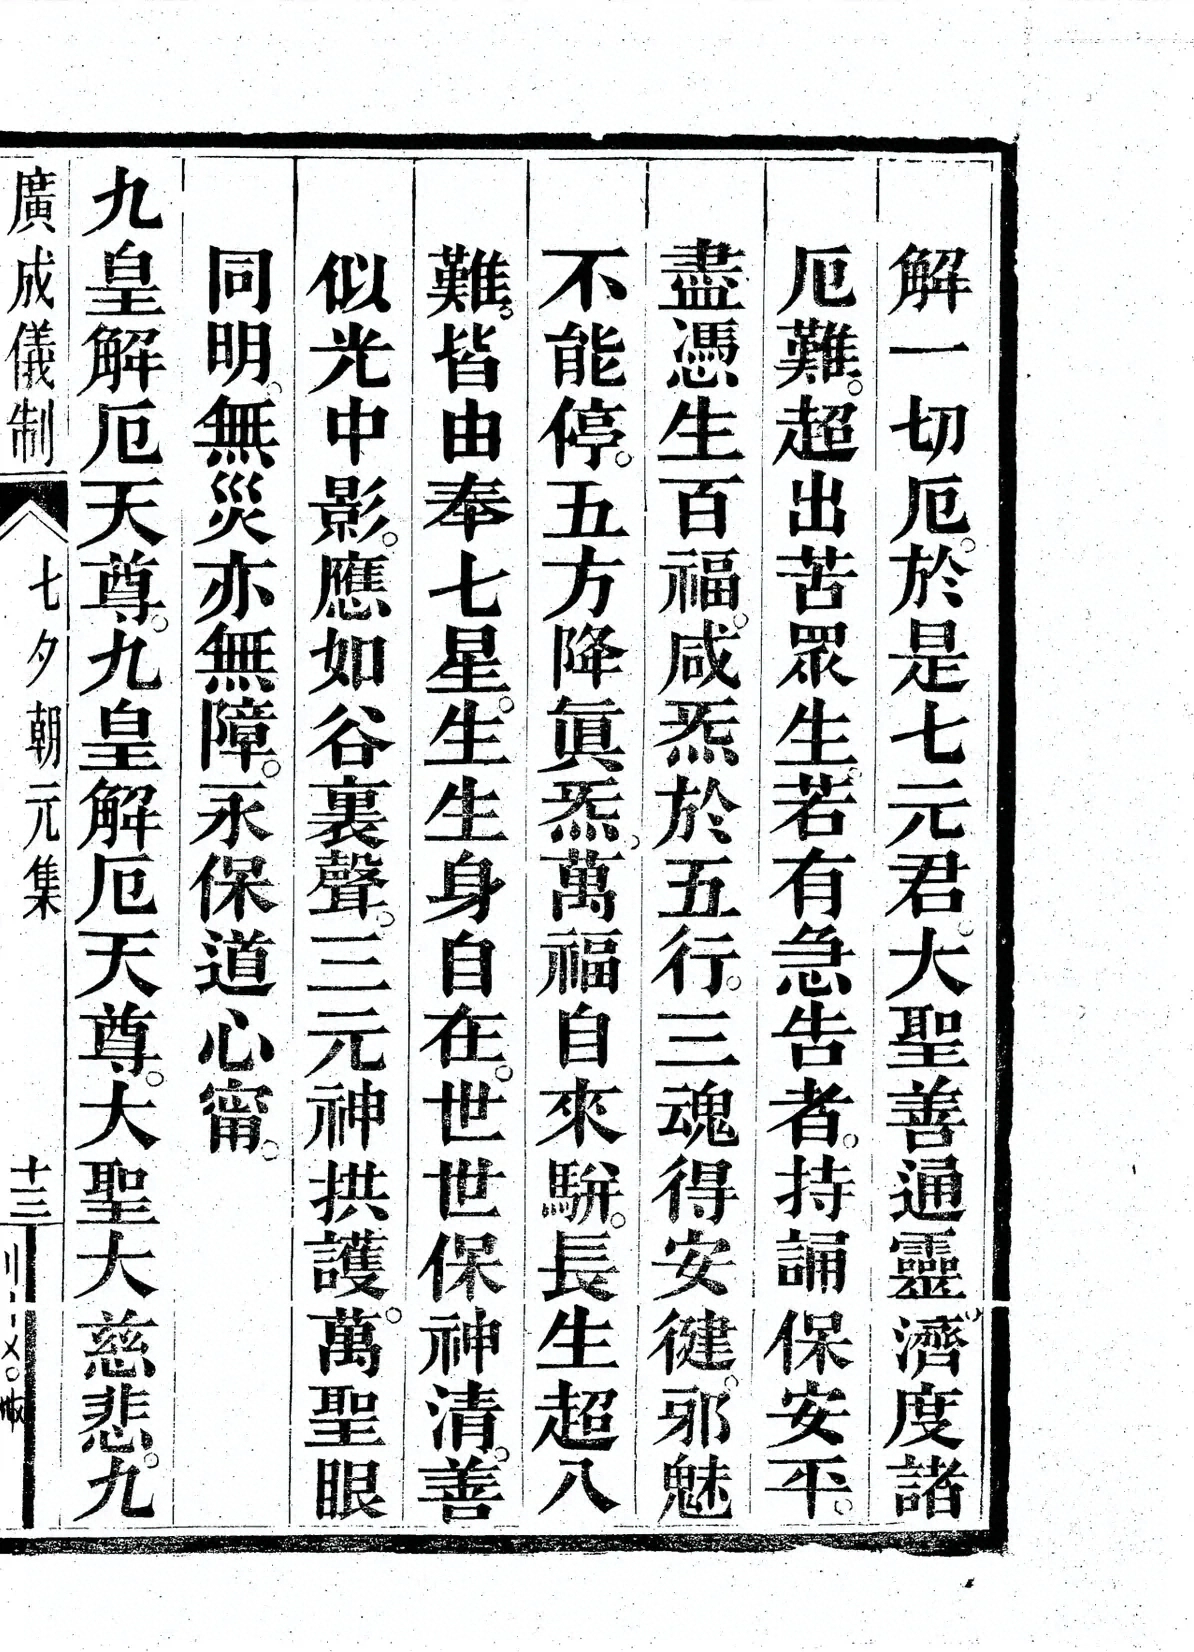 解一切厄。於是七元君。大聖善通靈。濟度諸
厄難。超出苦眾生。若有急告者。持誦保安平。
盡憑生百福。咸炁於五行。三魂得安健。邪魅
不能停。五方降眞炁。萬福自來駢。長生超八
難。皆由奉七星。生生身自在。世世保神清。善
似光中影。應如谷裏聲。三元神拱護。萬聖眼
同明。無災亦無障。永保道心甯。
九皇解厄天尊。九皇解厄天尊。大聖大慈悲。九
廣成儀制
七夕朝元集
十三